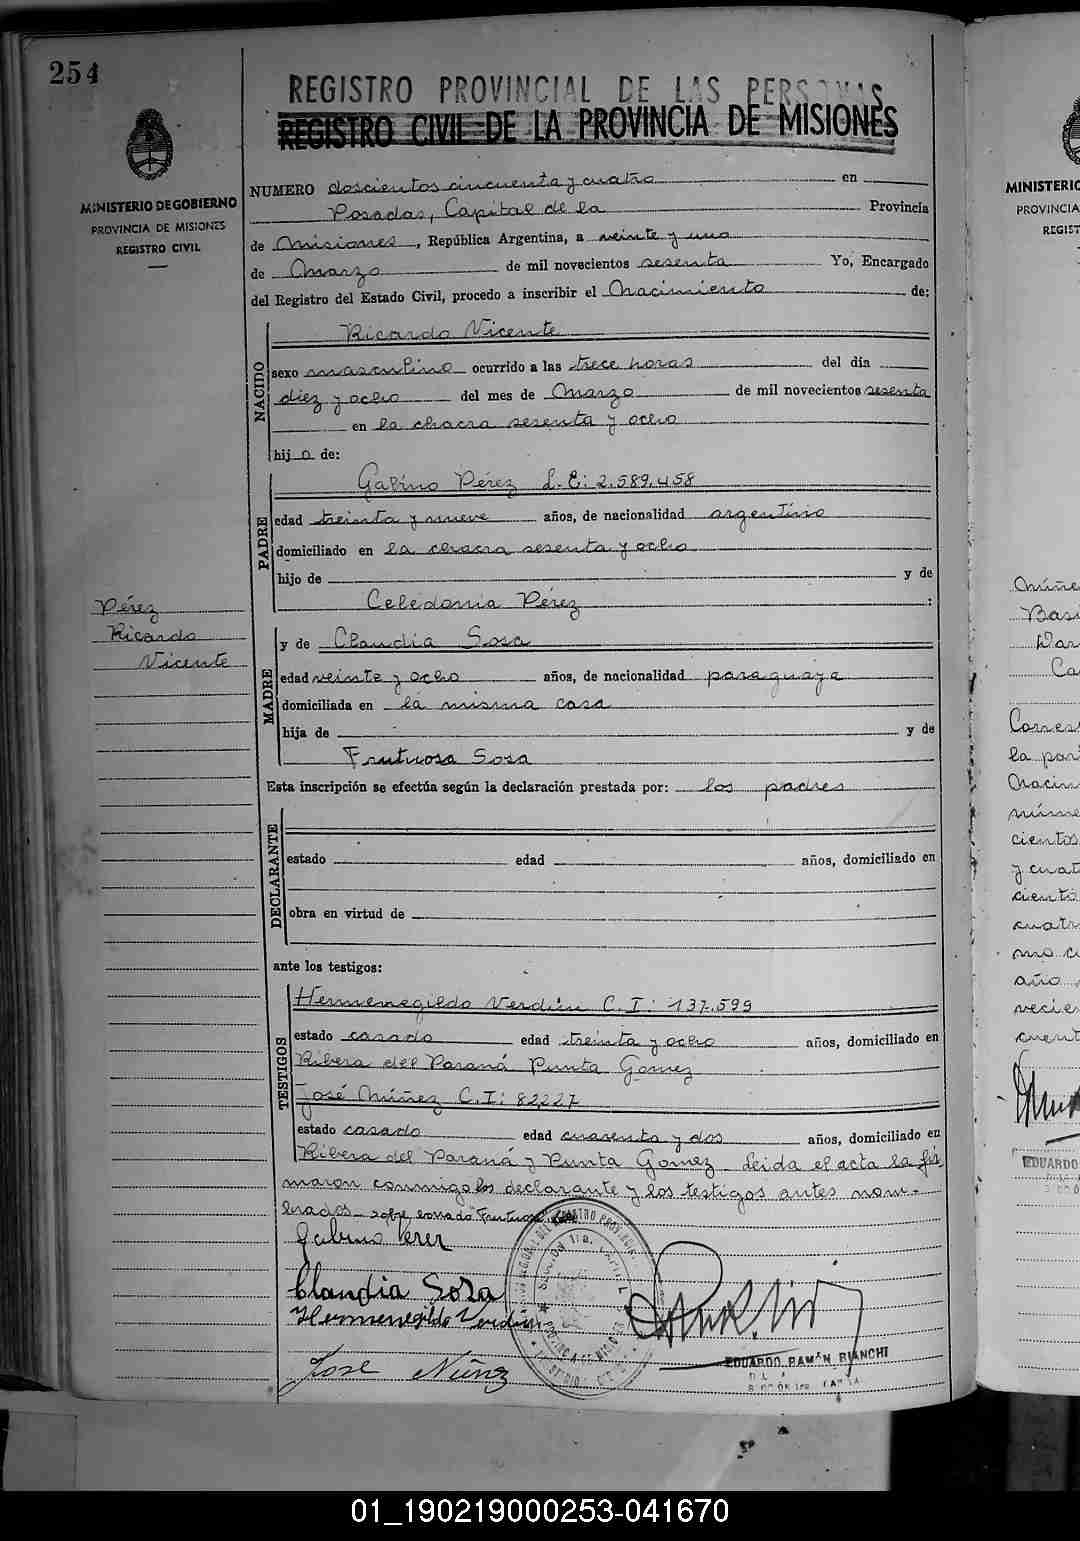 254
REGISTRO PROVINCIAL DE LAS PERSONAS
REGISTRO CIVIL DE LA PROVINCIA DE MISIONES
MINISTERIO DE GOBIERNO
PROVINCIA DE MISIONES
REGISTRO CIVIL
NUMERO doscientos cincuenta y cuatro en
Posadas, Capital de la Provincia
de Misiones, República Argentina, a veinte y uno
de Marzo de mil novecientos sesenta Yo, Encargado
del Registro del Estado Civil, procedo a inscribir el Nacimiento de:
NACIDO
Ricardo Vicente
sexo masculino ocurrido a las trece horas del día
diez y ocho del mes de Marzo de mil novecientos sesenta
en la chacra sesenta y ocho
hijo de:
PADRE
Gabino Pérez L.E: 2.589.458
edad treinta y nueve años, de nacionalidad argentino
domiciliado en la chacra sesenta y ocho
hijo de y de
Celedonia Pérez :
Pérez
Ricardo
Vicente
MADRE
y de Claudia Sosa
edad veinte y ocho años, de nacionalidad paraguaya
domiciliada en la misma casa
hija de y de
Frutuosa Sosa
Esta inscripción se efectúa según la declaración prestada por: los padres
DECLARANTE
estado edad años, domiciliado en
obra en virtud de
ante los testigos:
TESTIGOS
Hermenegildo Verdún C.I: 137.599
estado casado edad treinta y ocho años, domiciliado en
Ribera del Paraná Punta Gomez
José Núñez C.I: 82227
estado casado edad cuarenta y dos años, domiciliado en
Ribera del Paraná y Punta Gomez. Leida el acta la fir
maron conmigo los declarante y los testigos antes nom-
brados - sobre borrado "Frutuosa"
Gabino Perez
Claudia Sosa
Hermenegildo Verdún
Jose Núñez
EDUARDO RAMÓN BIANCHI
MINISTERIO
PROVINCIA
REGIST
Corres
la par
Nacim
núme
cientos
y cuat
ciento
cuatr
mo
año
vecie
cuent
EDUARDO
01_190219000253-041670